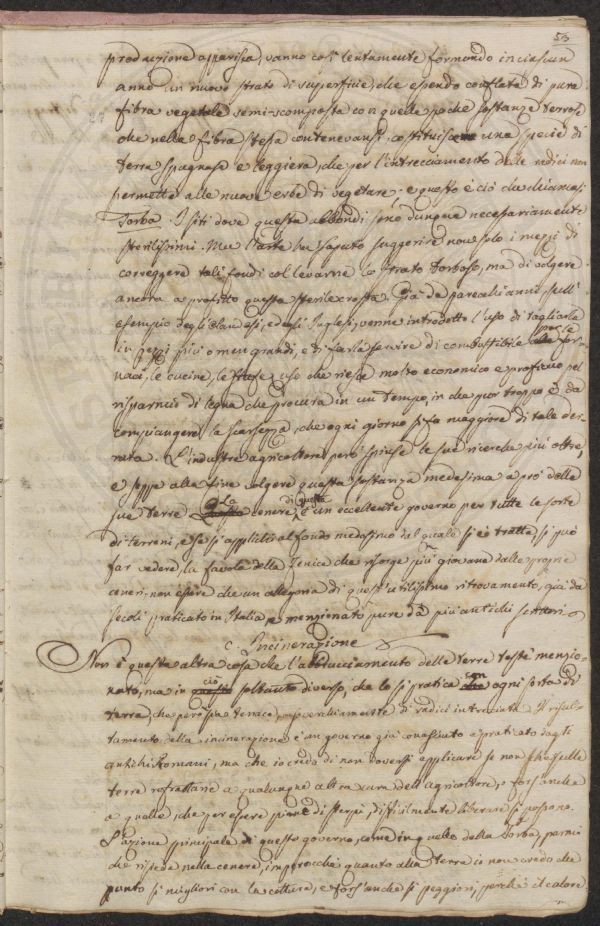 53
produzione apparisca, vanno così lentamente formando in ciascun
anno un nuovo strato di superficie, che essendo conflata di pura
fibra vegetale semi-scomposta con quelle poche sostanze terrose
che nella fibra stessa contenevansi, costituisce una specie di
terra spugnosa e leggiera, che per l'intrecciamento delle radici non
permette alle nuove erbe di vegetare; e questo è ciò che chiamasi
Torba. I siti dove questa abbondi sono dunque necessariamente
sterilissimi. Ma l'arte ha saputo suggerire non solo i mezzi di
correggere tali fondi col levarne lo strato torboso, ma di volgere
ancora a profitto questa sterile crosta. Già da parecchi anni sull'
esempio degli Olandesi, e degli Inglesi, venne introdotto l'uso di tagliarla
in pezzi più o men grandi, e di farla servire di combustibile per le for-
naci, le cucine, le stufe; uso che riesce molto economico e proficuo pel
risparmio di legna che procura in un tempo, in che pur troppo è da
compiangere la scarsezza, che ogni giorno si fa maggiore di tale der-
rata. L'industre agricoltore però spinse le sue ricerche più oltre,
e seppe alla fine volgere questa sostanza medesima a pro delle
sue terre. La cenere di questa è un eccellente governo per tutte le sorte
di terreni, e se si applichi al fondo medesimo dal quale si è tratta, si può
far vedere, la favola della Fenice che risorge più giovane dalle proprie
ceneri non essere che un allegoria di quest'utilissimo ritrovamento, già da
secoli praticato in Italia, e menzionato pure da più antichi scrittori.
C. Incinerazione
Non è questa altra cosa che l'abbruciamento delle terre testé menzio-
nato, ma in ciò soltanto diverso, che lo si pratica con ogni sorta di
terra, che però sia tenace, di radici intrecciata. Il risul-
tamento della incinerazione è un governo già conosciuto e praticato dagli
antichi Romani, ma che io credo di non doversi applicare se non sulle
terre refrattarie a qualunque altra cura dell'agricoltore, o fors'anche
a quelle, che per essere piene di sterpi, difficilmente liberare si possono.
L'azione principale di questo governo, come in quello della Torba, parmi
che risieda nella cenere, imperocché quanto alla terre io non credo che
punto si migliori con la cottura, e fors'anche si peggiori, perché il calore